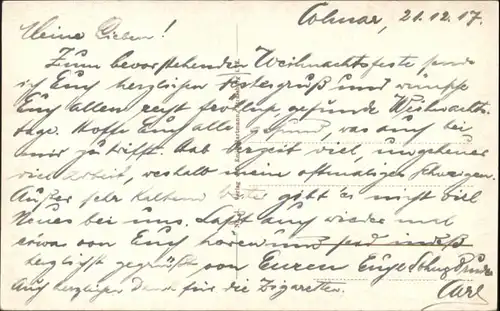 Colmar, 21.12.17.
Meine Lieben!
Zum bevorstehenden Weihnachtsfeste sende
ich Euch herzlichen Festesgruß und wünsche
Euch allen recht fröhliche, gesunde Weihnachts-
tage. Hoffe Euch alle gesund, was auch bei
mir zutrifft. Hab derzeit viel, ungeheuer
viel Arbeit, weshalb meine oftmaligen Schweigen.
Außer sehr kaltem Wetter gibt's nicht viel
Neues bei uns. Laßt auch wieder mal
etwas von Euch hören und seid indeß
herzlichst gegrüßt von Eurem
Carl
Auch herzlichen Dank für die Zigaretten.